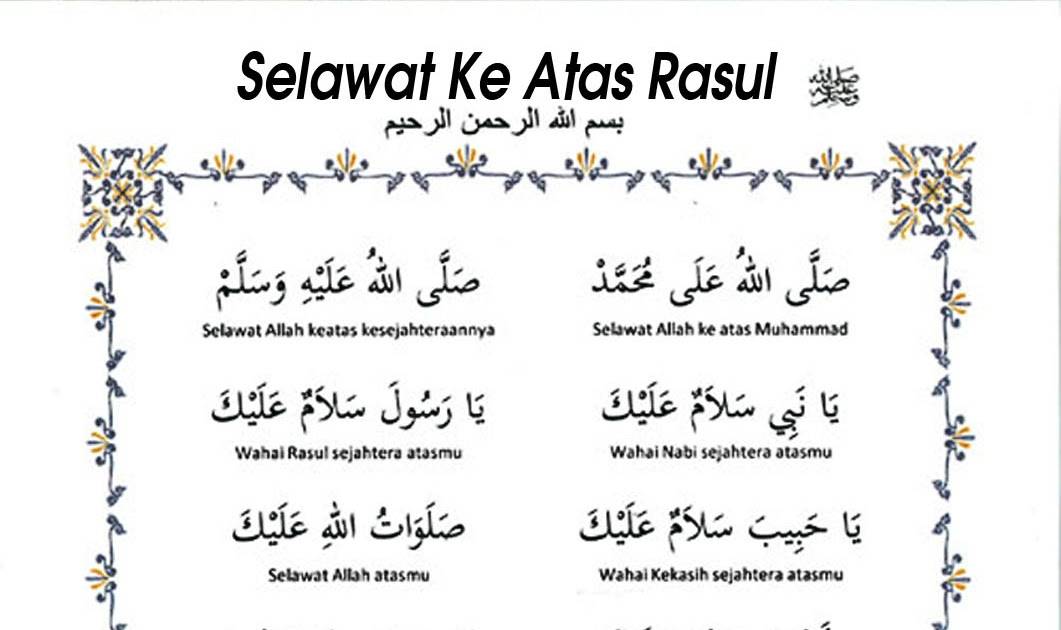 Selawat Ke Atas Rasul ﷺ
بسم الله الرحمن الرحيم
صَلَّى اللهُ عَلَى مُحَمَّدْ
صَلَّى اللهُ عَلَيْهِ وَسَلَّمْ
Selawat Allah ke atas Muhammad
Selawat Allah keatas kesejahteraannya
يَا نَبِي سَلاَمٌ عَلَيْكَ
يَا رَسُولَ سَلاَمٌ عَلَيْكَ
Wahai Nabi sejahtera atasmu
Wahai Rasul sejahtera atasmu
يَا حَبِيبَ سَلاَمٌ عَلَيْكَ
صَلَوَاتُ اللهِ عَلَيْكَ
Wahai Kekasih sejahtera atasmu
Selawat Allah atasmu